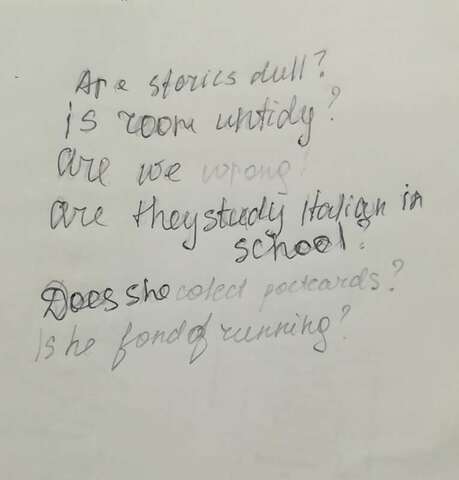 Are stories dull?
is room untidy?
are we wrong?
are they study Italian in
school?
Does she colect postcards?
Is he fond of running?